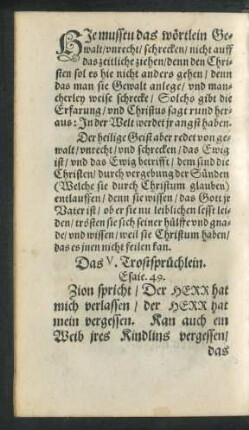 HIe mussen das wörtlein Ge-
walt/vnrecht/schrecken/nicht auff
das zeitliche ziehen/denn den Chri-
sten sol es hie nicht anders gehen/denn
das man sie Gewalt anlege/vnd man-
cherley weise schrecke/Solchs gibt die
Erfarung/vnd Christus sagt rund her-
aus: In der Welt werdet jr angst haben.
Der heilige Geist aber redet von ge-
walt/vnrecht/vnd schrecken/das Ewig
ist/vnd das Ewig betrifft/dem sind die
Christen/durch vergebung der Sünden
(Welche sie durch Christum glauben)
entlauffen/denn sie wissen/das Gott jr
Vater ist/ob er sie nu leiblichen lesst lei-
den/trösten sie sich seiner hülffe vnd gna-
de/vnd wissen/weil sie Christum haben/
das es jnen nicht feilen kan.
Das V. Trostsprüchlein.
Esaie. 49.
Zion spricht/Der HERR hat
mich verlassen/der HERR hat
mein vergessen. Kan auch ein
Weib jres Kindlins vergessen/
das